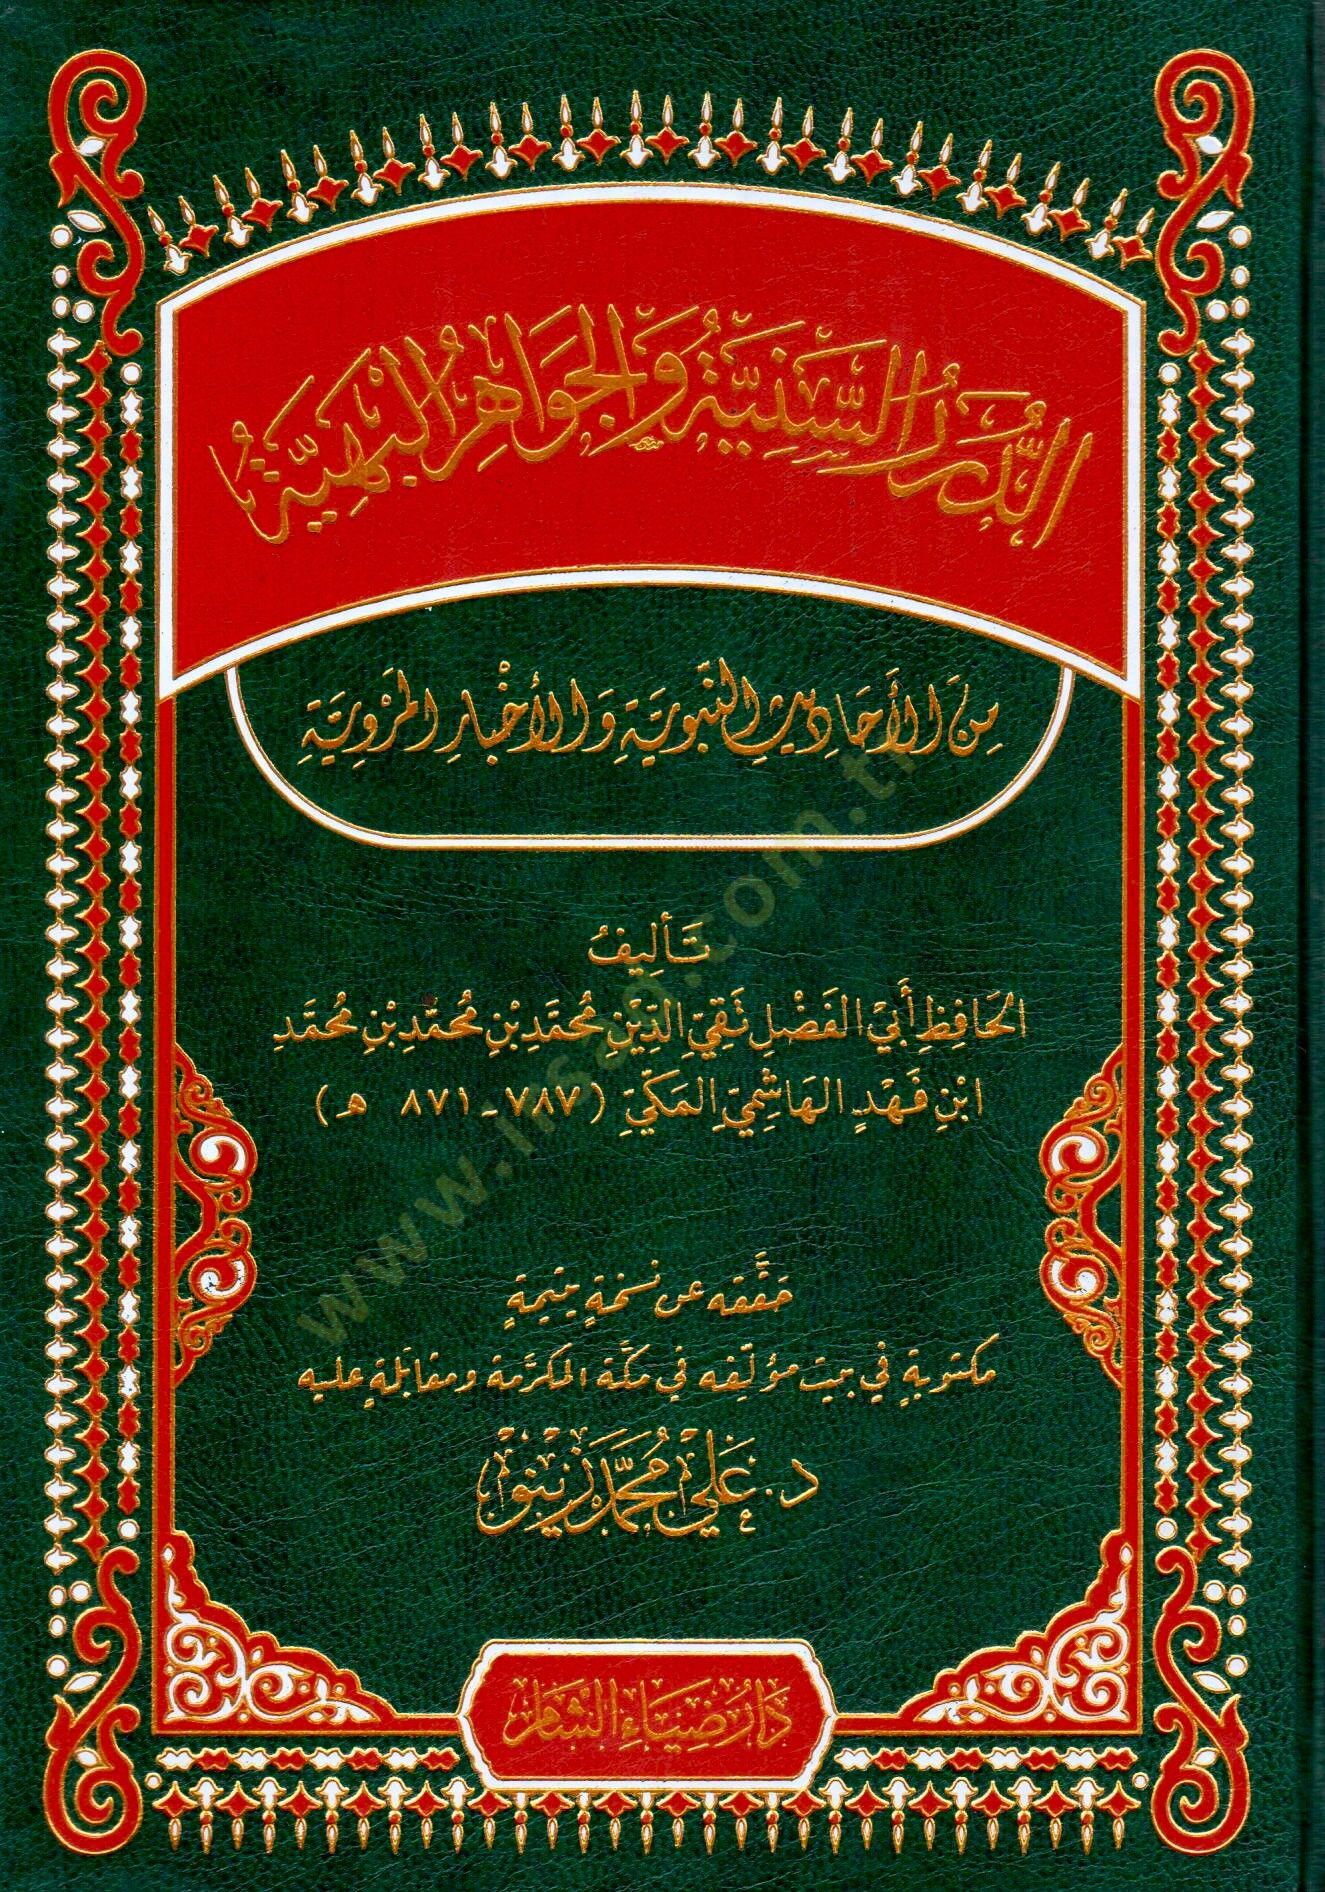 الدُّرَرُ السَّنِيَّةُ وَالجَوَاهِرُ البَهِيَّةُ
مِنَ الأَحَادِيثِ النَّبَوِيَّةِ وَالأَخْبَارِ المَرْوِيَّةِ
تَأليفُ
الحَافِظِ أَبِي الفَضْلِ تَقِيِّ الدِّيْنِ مُحمَّدِ بْنِ مُحمَّدِ بْنِ مُحمَّد
ابْنِ فَهْدٍ الهَاشِمِيِّ المَكِّيِّ (٧٨٧ - ٨٧١ هـ)
حقَّقه عن نسخةٍ يتيمةٍ
مكتوبةٍ في بيت مؤلِّفه في مكَّة المكرَّمة ومقابَلةٍ عليه
د. عَلِي مُحَمَّد زَيْنُو
دَارُ ضِيَاءِ الشَّام
www.irsad.com.tr